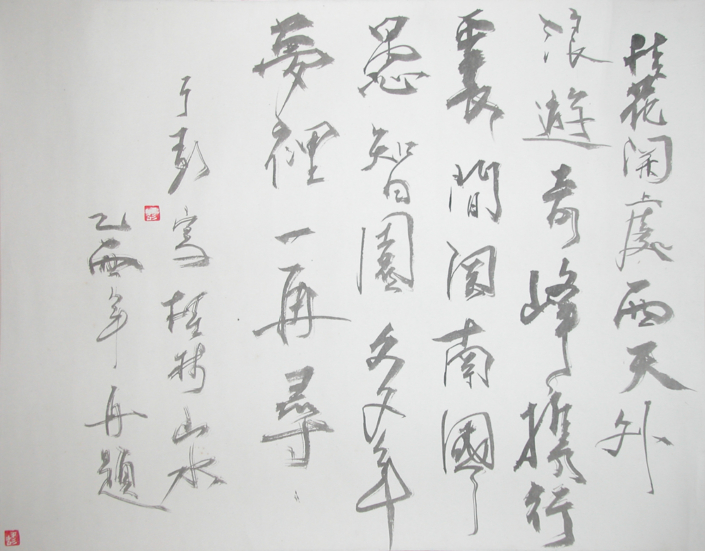 桂花開處西天外
浪遊奇峰攜行
囊間関南國
愚智園多年
夢裡一再尋
于彭寫桂林山水
乙酉年再題